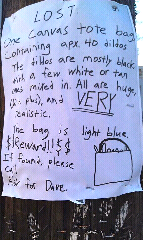 LOST
One canvas tote bag
Containing apx. 40 dildos
The dildos are mostly black
with a few white or tan
ones mixed in. All are huge,
plus), and VERY
realistic.
The bag is light blue.
$ Reward!! $
If found, please
call
for Dave.